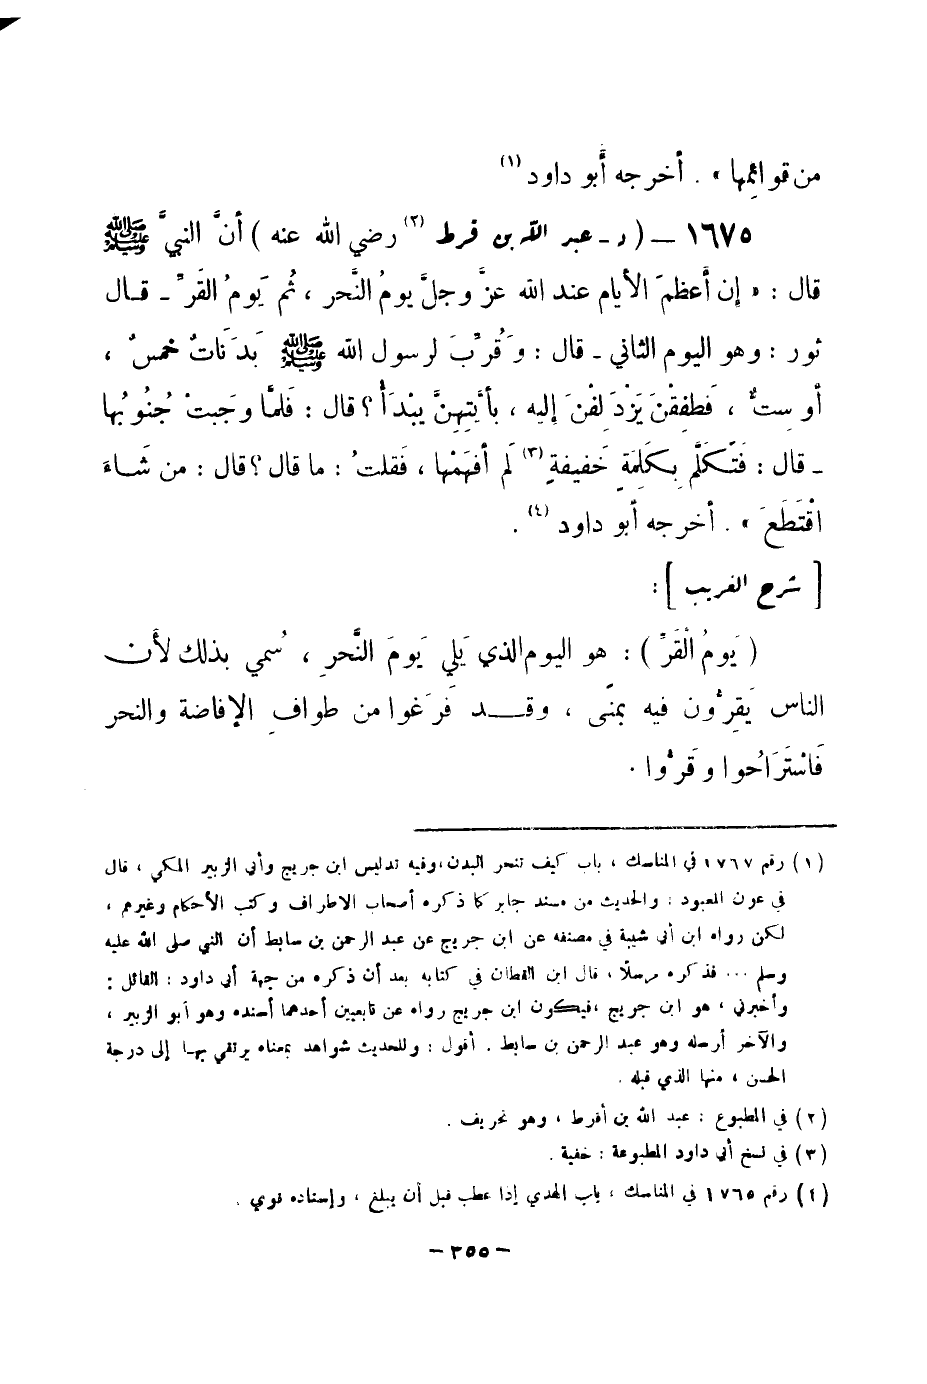 من قوائِمِها » . أخرجه أبو داود (١)
١٦٧٥ ــ ( د ـ عبد اللّه بن قرط (٢) رضي الله عنه ) أنَّ النبيَّ ﷺ
قال : « إن أَعظمَ الأيام عند الله عزَّ وجلَّ يومُ النَّحر ، ثُم يَومُ القَرِّ ـ قــال
ثور : وهو اليوم الثاني ـ قال : وَقُرِّبَ لرسول الله ﷺ بَدَنَاتٌ خمسٌ ،
أو سِتٌّ ، فَطفِقْنَ يَزْدَ لِفْنَ إليه ، بأَيَّتِهِنَّ يبْدَأُ ؟ قال : فَلمَّا وَجَبتْ جُنُوبُها
ـ قال : فَتَكَلَّم بِكَلِمَةٍ خَفيفةٍ (٣) لَم أفهَمْها ، فَقلتُ : ما قال ؟ قال : من شَــاءَ
اقْتَطَعَ » . أخرجه أبو داود (٤) .
[ شرح الغريب ] :
( يَومُ الْقَرِّ ) : هو اليوم الذي يَلِي يَومَ النَّحرِ ، سُمي بذلك لأَن
الناس يَقِرُّون فيه بمنًى ، وقــــد فَرَغوا من طوافِ الإفاضة والنحر
فَاسْتَرَاحُوا وقَرُّوا .
(١) رقم ١٧٦٧ في المناسك ، باب كيف تنحر البدن ، وفيه تدليس ابن جريج وأبي الزبير المكي ، قال
في عون المعبود : والحديث من مسند جابر كما ذكره أصحاب الاطراف وكتب الأحكام وغيرهم ،
لكن رواه ابن أبي شيبة في مصنفه عن ابن جريج عن عبد الرحمن بن سابط أن النبي صلى الله عليه
وسلم ... فذكره مرسلاً ، قال ابن القطان في كتابه بعد أن ذكره من جهة أبي داود : القائل :
وأخبرني ، هو ابن جريج ، فيكون ابن جريج رواه عن تابعيين أحدهما أسنده وهو أبو الزبير ،
والآخر أرسله وهو عبد الرحمن بن سابط . أقول : وللحديث شواهد بمعناه يرتقي بهــا إلى درجة
الحسن ، منها الذي قبله .
(٢) في المطبوع : عبد الله بن أقرط ، وهو تحريف .
(٣) في نسخ أبي داود المطبوعة : خفية .
(٤) رقم ١٧٦٥ في المناسك ، باب الهدي إذا عطب قبل أن يبلغ ، وإسناده قوي .
ــ ٣٥٥ ــ